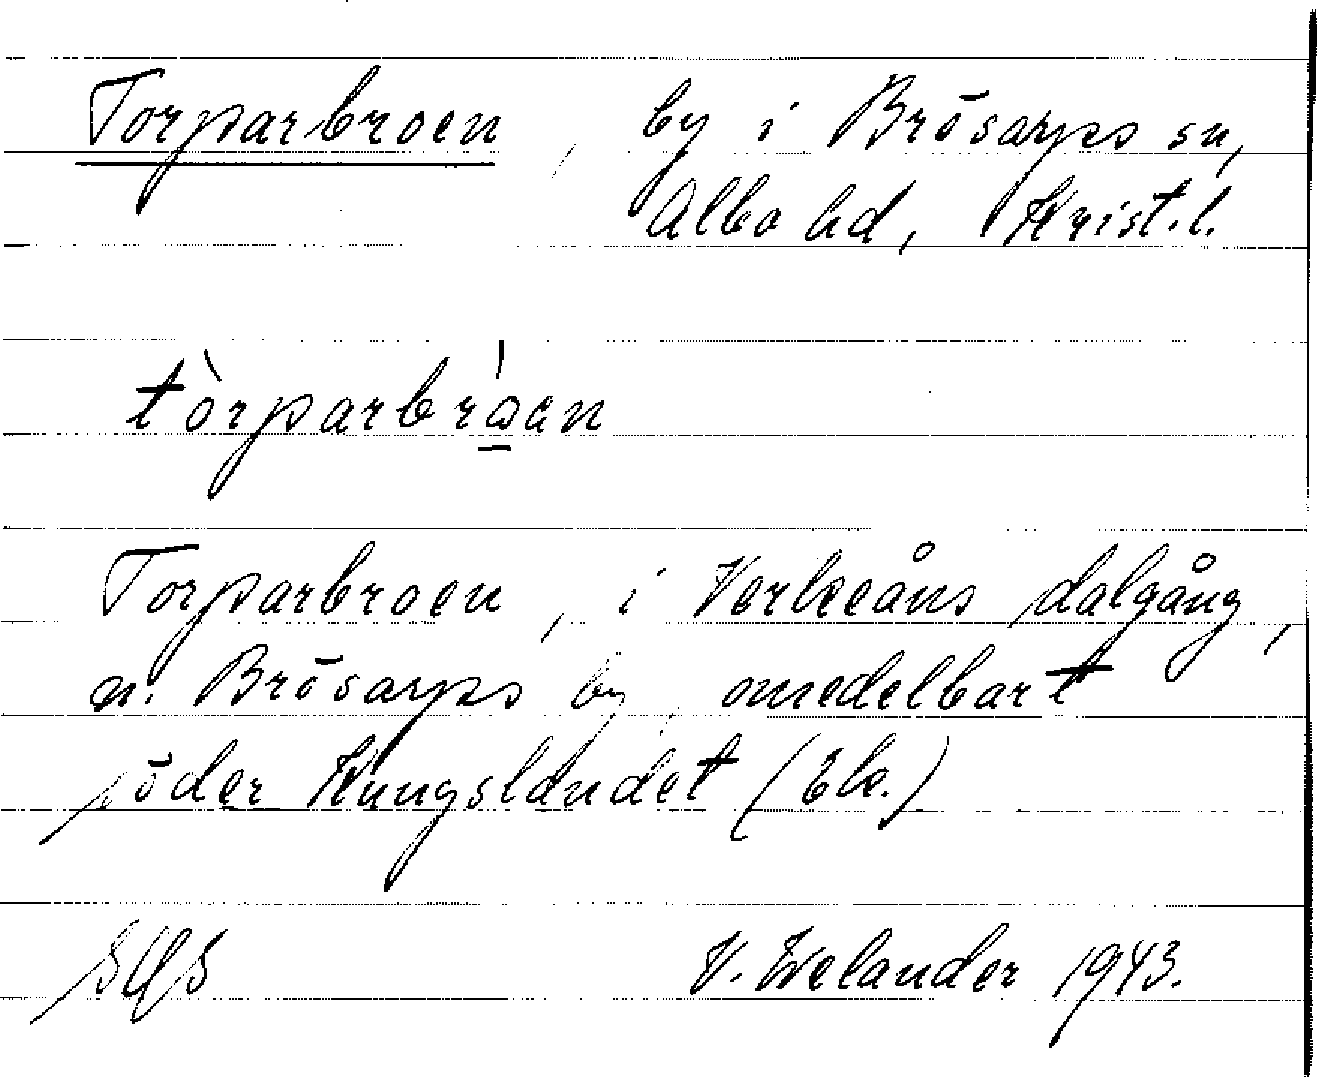 Torparbroen, by i Brösarps sn,
Albo hd, Krist.l.
tòrparbròen
Torparbroen, i Verkeåns dalgång,
n. Brösarps by, omedelbart
söder Kungslandet (Ek.)
V. Welander 1943.